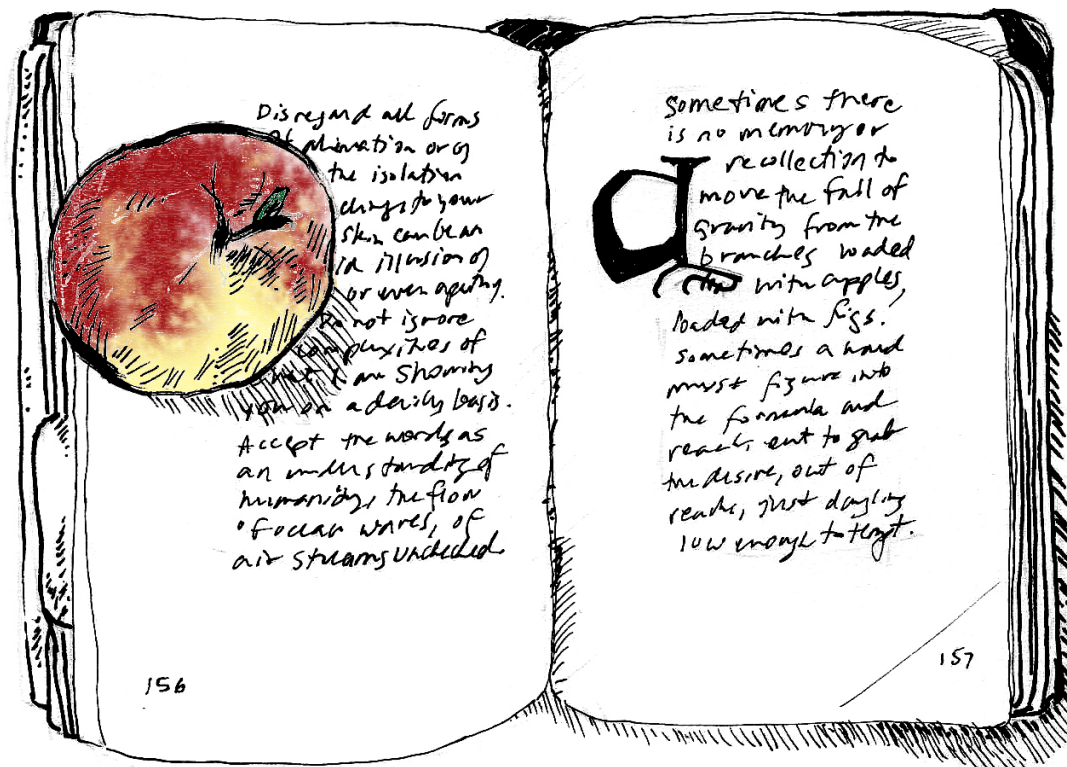 Disregard all forms
of animation or of
the isolation
clings to your
skin can be an
illusion of
or even apathy.
Do not ignore
complexities of
what I am showing
you on a daily basis.
Accept the words as
an understanding of
humanity, the flow
of ocean waves, of
air streams unchecked
156
sometimes there
is no memory or
recollection to
move the fall of
gravity from the
branches loaded
with apples,
loaded with figs.
sometimes a hand
must figure into
the formula and
reach out to grab
the desire, out of
reach, just dangling
low enough to tempt.
a
157